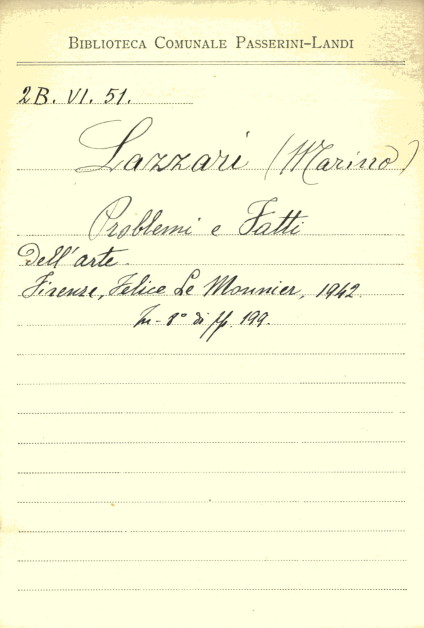 BIBLIOTECA COMUNALE PASSERINI-LANDI
2B. VI. 51.
Lazzari (Marino)
Problemi e Fatti
dell'arte.
Firenze, Felice Le Monnier, 1942.
In-8° di pp. 199.